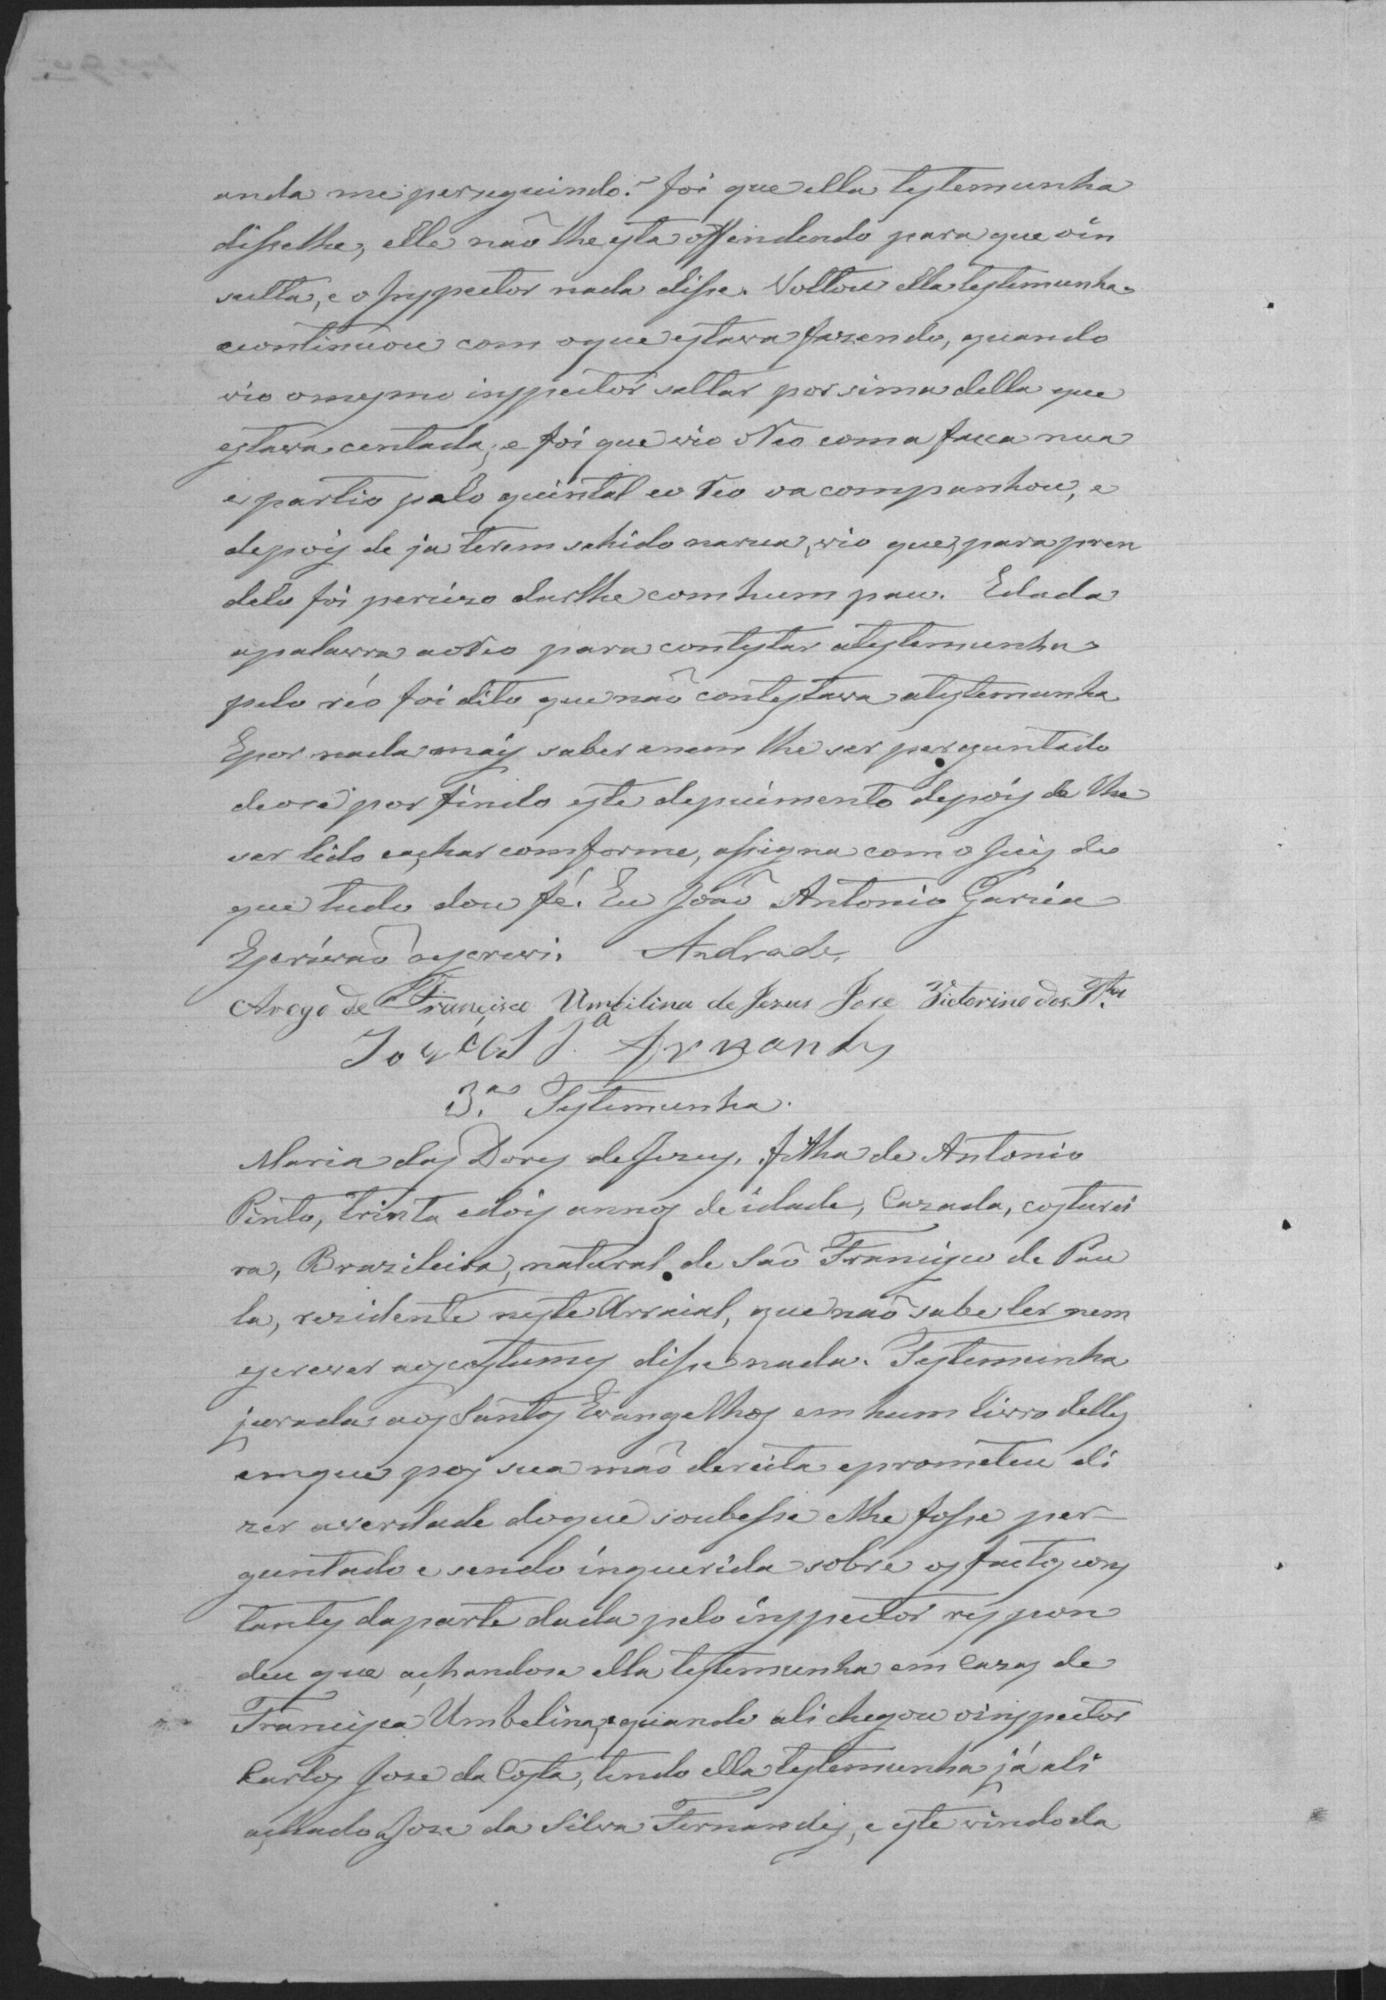 anda me perseguindo. foi que ella testemunha
disselhe, elle não lhe esta offendendo para que o in
sulta, e o Inspector nada disse. Voltou ella testemunha
continuou com o que estava fazendo, quando
vio o mesmo inspector saltar por sima della que
estava centada, e foi que vio o Reo com a faca nua
e partio pelo quintal e o Reo o acompanhou, e
depois de ja terem sahido na rua, vio que, para pren
delo foi perciso darlhe com hum pau. E dada
a palavra ao Reo para contestar a testemunha
pelo réo foi dito que não contestava a testemunha
E por nada mais saber e nem lhe ser perguntado
deose por findo este depuimento depois de lhe
ser lido e achar comforme, assigna com o Juis do
que tudo dou fé. Eu João Antonio Garcia
Escrivão o escrevi. Andrade
Arogo de Francisca Umbilina de Jezus Jose Victorino dos
José da S.a Fernandes
3.a Testemunha.
Maria das Dores de Jezus, filha de Antonio
Pinto, trinta e dois annos de idade, Cazada, costurei
ra, Brazileira, natural de São Francisco de Pau
la, rezidente neste Arraial, que não sabe ler nem
escrever aos costumes disse nada. Testemunha
jurada aos Santos Evangelhos em hum livro delles
em que pos sua mão dereita e prometeu di
zer a verdade do que soubesse e lhe fosse per-
guntado e sendo inquerida sobre os factos cons
tantes da parte dada pelo inspector respon
deu que achandose ella testemunha em Cazas de
Francisca Umbelina, quando ali chegou o inspector
Carlos Jose da Costa, tendo ella testemunha já ali
achado a Jose da Silva Fernandes, e este vindo da